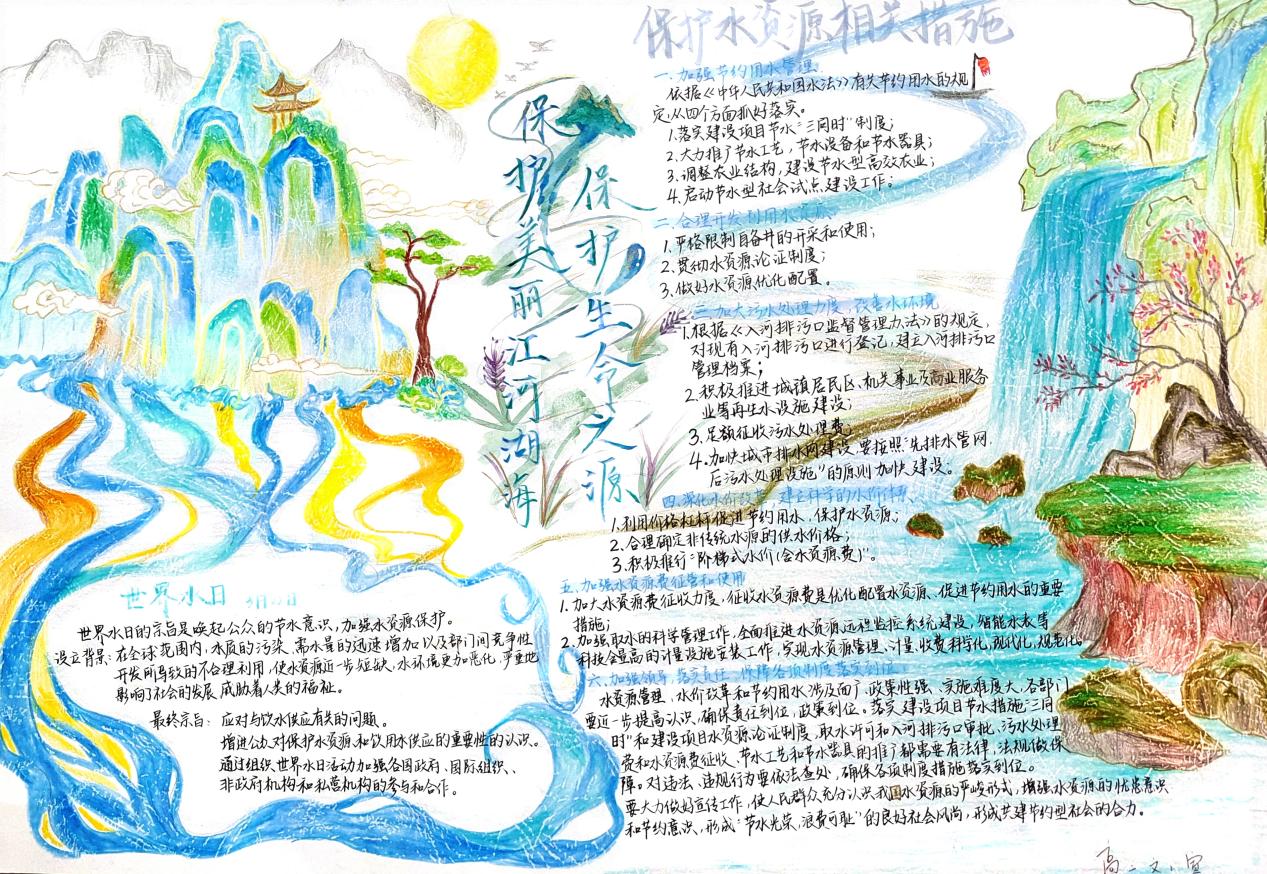 保护水资源相关措施
保护美丽江河湖海
保护生命之源
一、加强节约用水管理。
依据《中华人民共和国水法》有关节约用水的规
定,从四个方面抓好落实。
1.落实建设项目节水“三同时”制度;
2.大力推广节水工艺,节水设备和节水器具;
3.调整农业结构,建设节水型高效农业;
4.启动节水型社会试点建设工作。
二、合理开发利用水资源、
1.严格限制自备井的开采和使用;
2.贯彻水资源论证制度;
3.做好水资源优化配置。
三、加大污水处理力度,改善水环境
1.根据《入河排污口监督管理办法》的规定,
对现有入河排污口进行登记,建立入河排污口
管理档案;
2.积极推进城镇居民区、机关事业及商业服务
业等再生水设施建设;
3.足额征收污水处理费;
4.加快城市排水网建设,要按照“先排水管网,
后污水处理设施”的原则加快建设。
四、深化水价改革,建立科学的水价体系、
1.利用价格杠杆促进节约用水,保护水资源;
2.合理确定非传统水源的供水价格;
3.积极推行“阶梯式水价(含水资源费)”。
五、加强水资源费征管和使用
1.加大水资源费征收力度,征收水资源费是优化配置水资源、促进节约用水的重要
措施;
2.加强取水的科学管理工作,全面推进水资源远程监控系统建设,智能水表等
科技含量高的计量设施安装工作,实现水资源管理、计量、收费科学化,现代化,规范化。
六、加强领导,落实责任,保障各项制度落实到位
水资源管理、水价改革和节约用水涉及面广、政策性强、实施难度大,各部门
要近一步提高认识,确保责任到位,政策到位。落实建设项目节水措施“三同
时”和建设项目水资源论证制度,取水许可和入河排污口审批,污水处理
费和水资源费征收、节水工艺和节水器具的推广都需要有法律,法规做保
障。对违法、违规行为要依法查处,确保各项制度措施落实到位。
要大力做好宣传工作,使人民群众充分认识我国水资源的严峻形式,增强水资源的忧患意识
和节约意识,形成“节水光荣,浪费可耻”的良好社会风尚,形成共建节约型社会的合力。
世界水日 3月22日
世界水日的宗旨是唤起公众的节水意识,加强水资源保护。
设立背景:在全球范围内,水质的污染、需水量的迅速增加以及部门间竞争性
开发所导致的不合理利用,使水资源近一步短缺,水环境更加恶化,严重地
影响了社会的发展,威胁着人类的福祉。
最终宗旨: 应对与饮水供应有关的问题。
增进公众对保护水资源和饮用水供应的重要性的认识。
通过组织世界水日活动加强各国政府、国际组织、
非政府机构和私营机构的参与和合作。